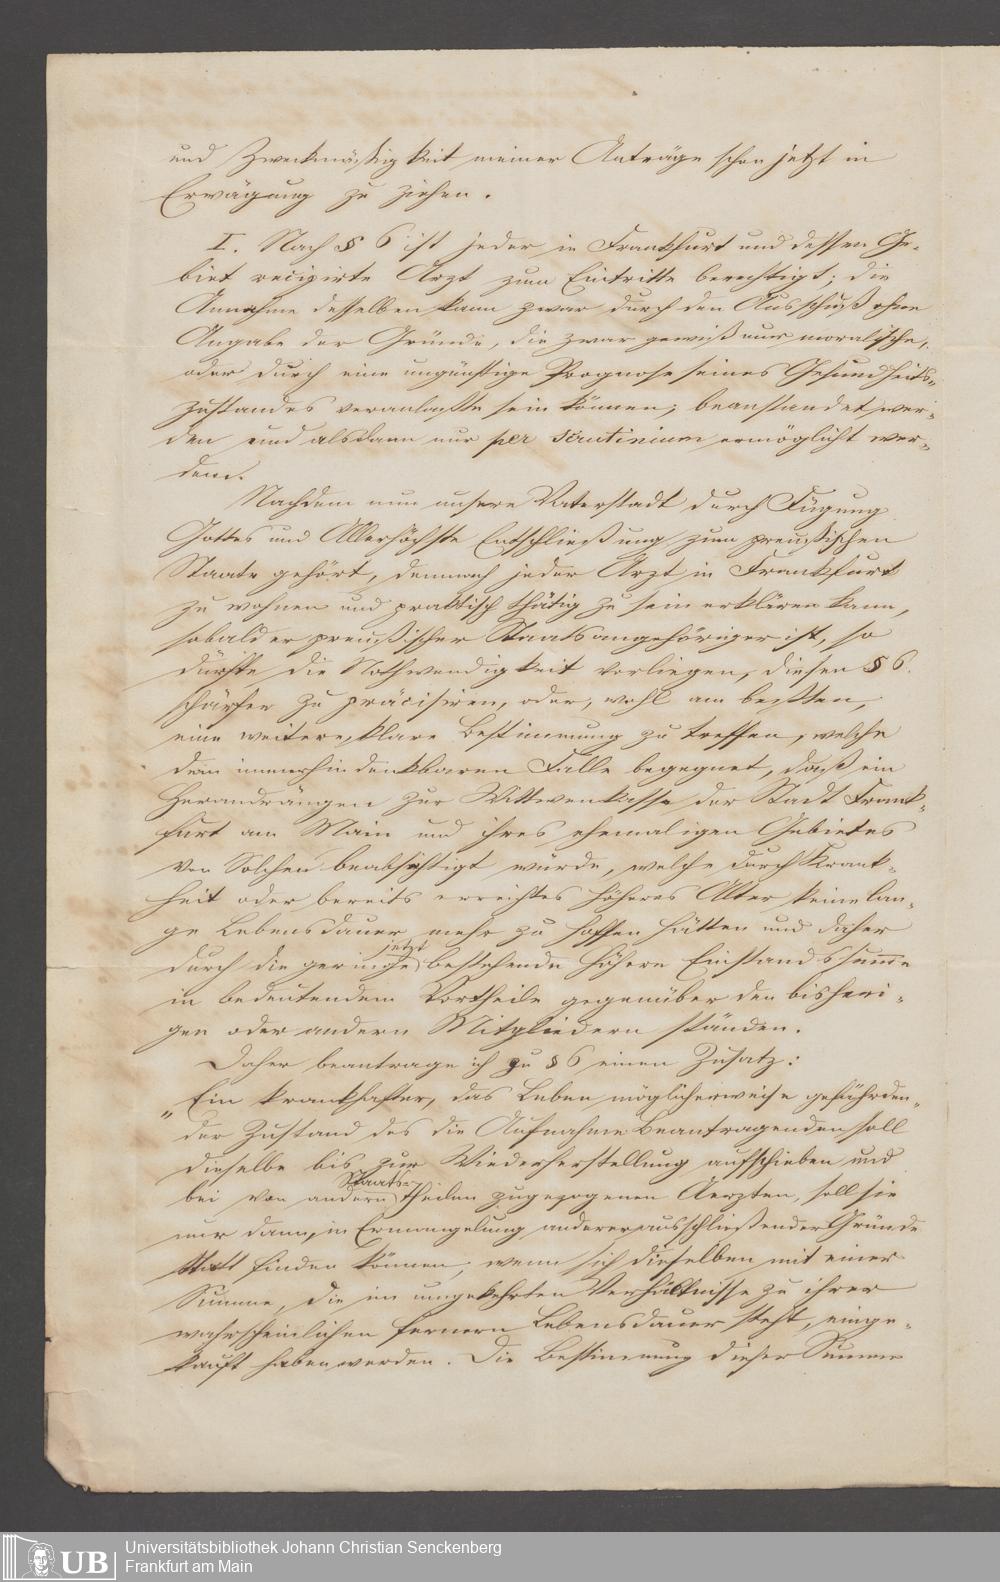 und Zweckmäßigkeit meiner Anträge schon jetzt in
Erwägung zu ziehen.
I. Nach § 6 ist jeder in Frankfurt und dessen Ge-
biet recipirte Arzt zum Eintritte berechtigt; die
Annahme desselben kann zwar durch den Ausschuß ohne
Angabe der Gründe, die zwar gewiß nur moralische,
oder durch eine ungünstige Prognose seines Gesundheits-
zustandes veranlaßte sein können, beanstandet wer-
den und alsdann nur per scrutinium ermöglicht wer-
den.
Nachdem nun unsere Vaterstadt durch Fügung
Gottes und Allerhöchste Entschließung zum preußischen
Staate gehört, demnach jeder Arzt in Frankfurt
zu wohnen und praktisch thätig zu sein erklären kann,
sobald er preußischer Staatsangehöriger ist, so
dürfte die Nothwendigkeit vorliegen, diesen § 6.
schärfer zu präcisiren, oder, wohl am besten,
eine weitere, klare Bestimmung zu treffen, welche
dem immerhin denkbaren Falle begegnet, daß ein
Herandrängen zur Wittwenkasse der Stadt Frank-
furt am Main und ihres ehemaligen Gebietes
von Solchen beabsichtigt würde, welche durch Krank-
heit oder bereits erreichtes höheres Alter keine lan-
ge Lebensdauer mehr zu hoffen hätten und daher
jetzt
durch die geringe bestehende höhere Einstandssumme
in bedeutendem Vortheile gegenüber den bisheri-
gen oder andern Mitgliedern ständen.
Daher beantrage ich zu § 6 einen Zusatz:
„Ein krankhafter, das Leben möglicherweise gefährden-
der Zustand des die Aufnahme Beantragenden soll
dieselbe bis zur Wiederherstellung aufschieben und
Staats-
bei von andern theilen zugezogenen Aerzten, soll sie
nur dann, in Ermangelung anderer ausschließender Gründe
statt finden können, wenn sich dieselben mit einer
Summe, die im umgekehrten Verhältnisse zu ihrer
wahrscheinlichen fernern Lebensdauer steht, einge-
kauft haben werden. Die Bestimmung dieser Summe
UB
Universitätsbibliothek Johann Christian Senckenberg
Frankfurt am Main